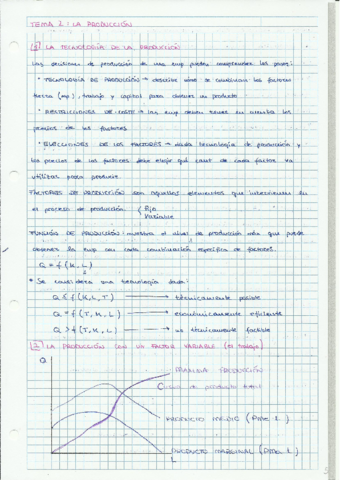 TEMA 2: LA PRODUCCIÓN
1 LA TECNOLOGÍA DE LA PRODUCCIÓN
Las decisiones de producción de una emp pueden comprenderse los pasos:
* TECNOLOGÍA DE PRODUCCIÓN → describe cómo se combinan los factores
tierra (mp), trabajo y capital para obtener un producto
* RESTRICCIONES DE COSTE → las emp deben tener en cuenta los
precios de los factores
* ELECCIONES DE LOS FACTORES → dada tecnología de producción y
los precios de los factores debe elegir qué cant de cada factor va
utilizar para producir
FACTORES DE PRODUCCIÓN son aquellos elementos que intervienen en
el proceso de producción. { Fijo
Variable
FUNCIÓN DE PRODUCCIÓN: muestra el nivel de producción máx que puede
obtener la emp con cada combinación específica de factores.
Q = f (K, L)
* Se considera una tecnología dada:
Q ≤ f (K, L, T) → técnicamente posible
Q = f (T, K, L) → económicamente eficiente
Q > f (T, K, L) → no técnicamente factible
2 LA PRODUCCIÓN CON UN FACTOR VARIABLE (el trabajo)
Q
MÁXIMA PRODUCCIÓN
Curva de producto total
PRODUCTO MEDIO (PMe L)
PRODUCTO MARGINAL (PMa L)
L